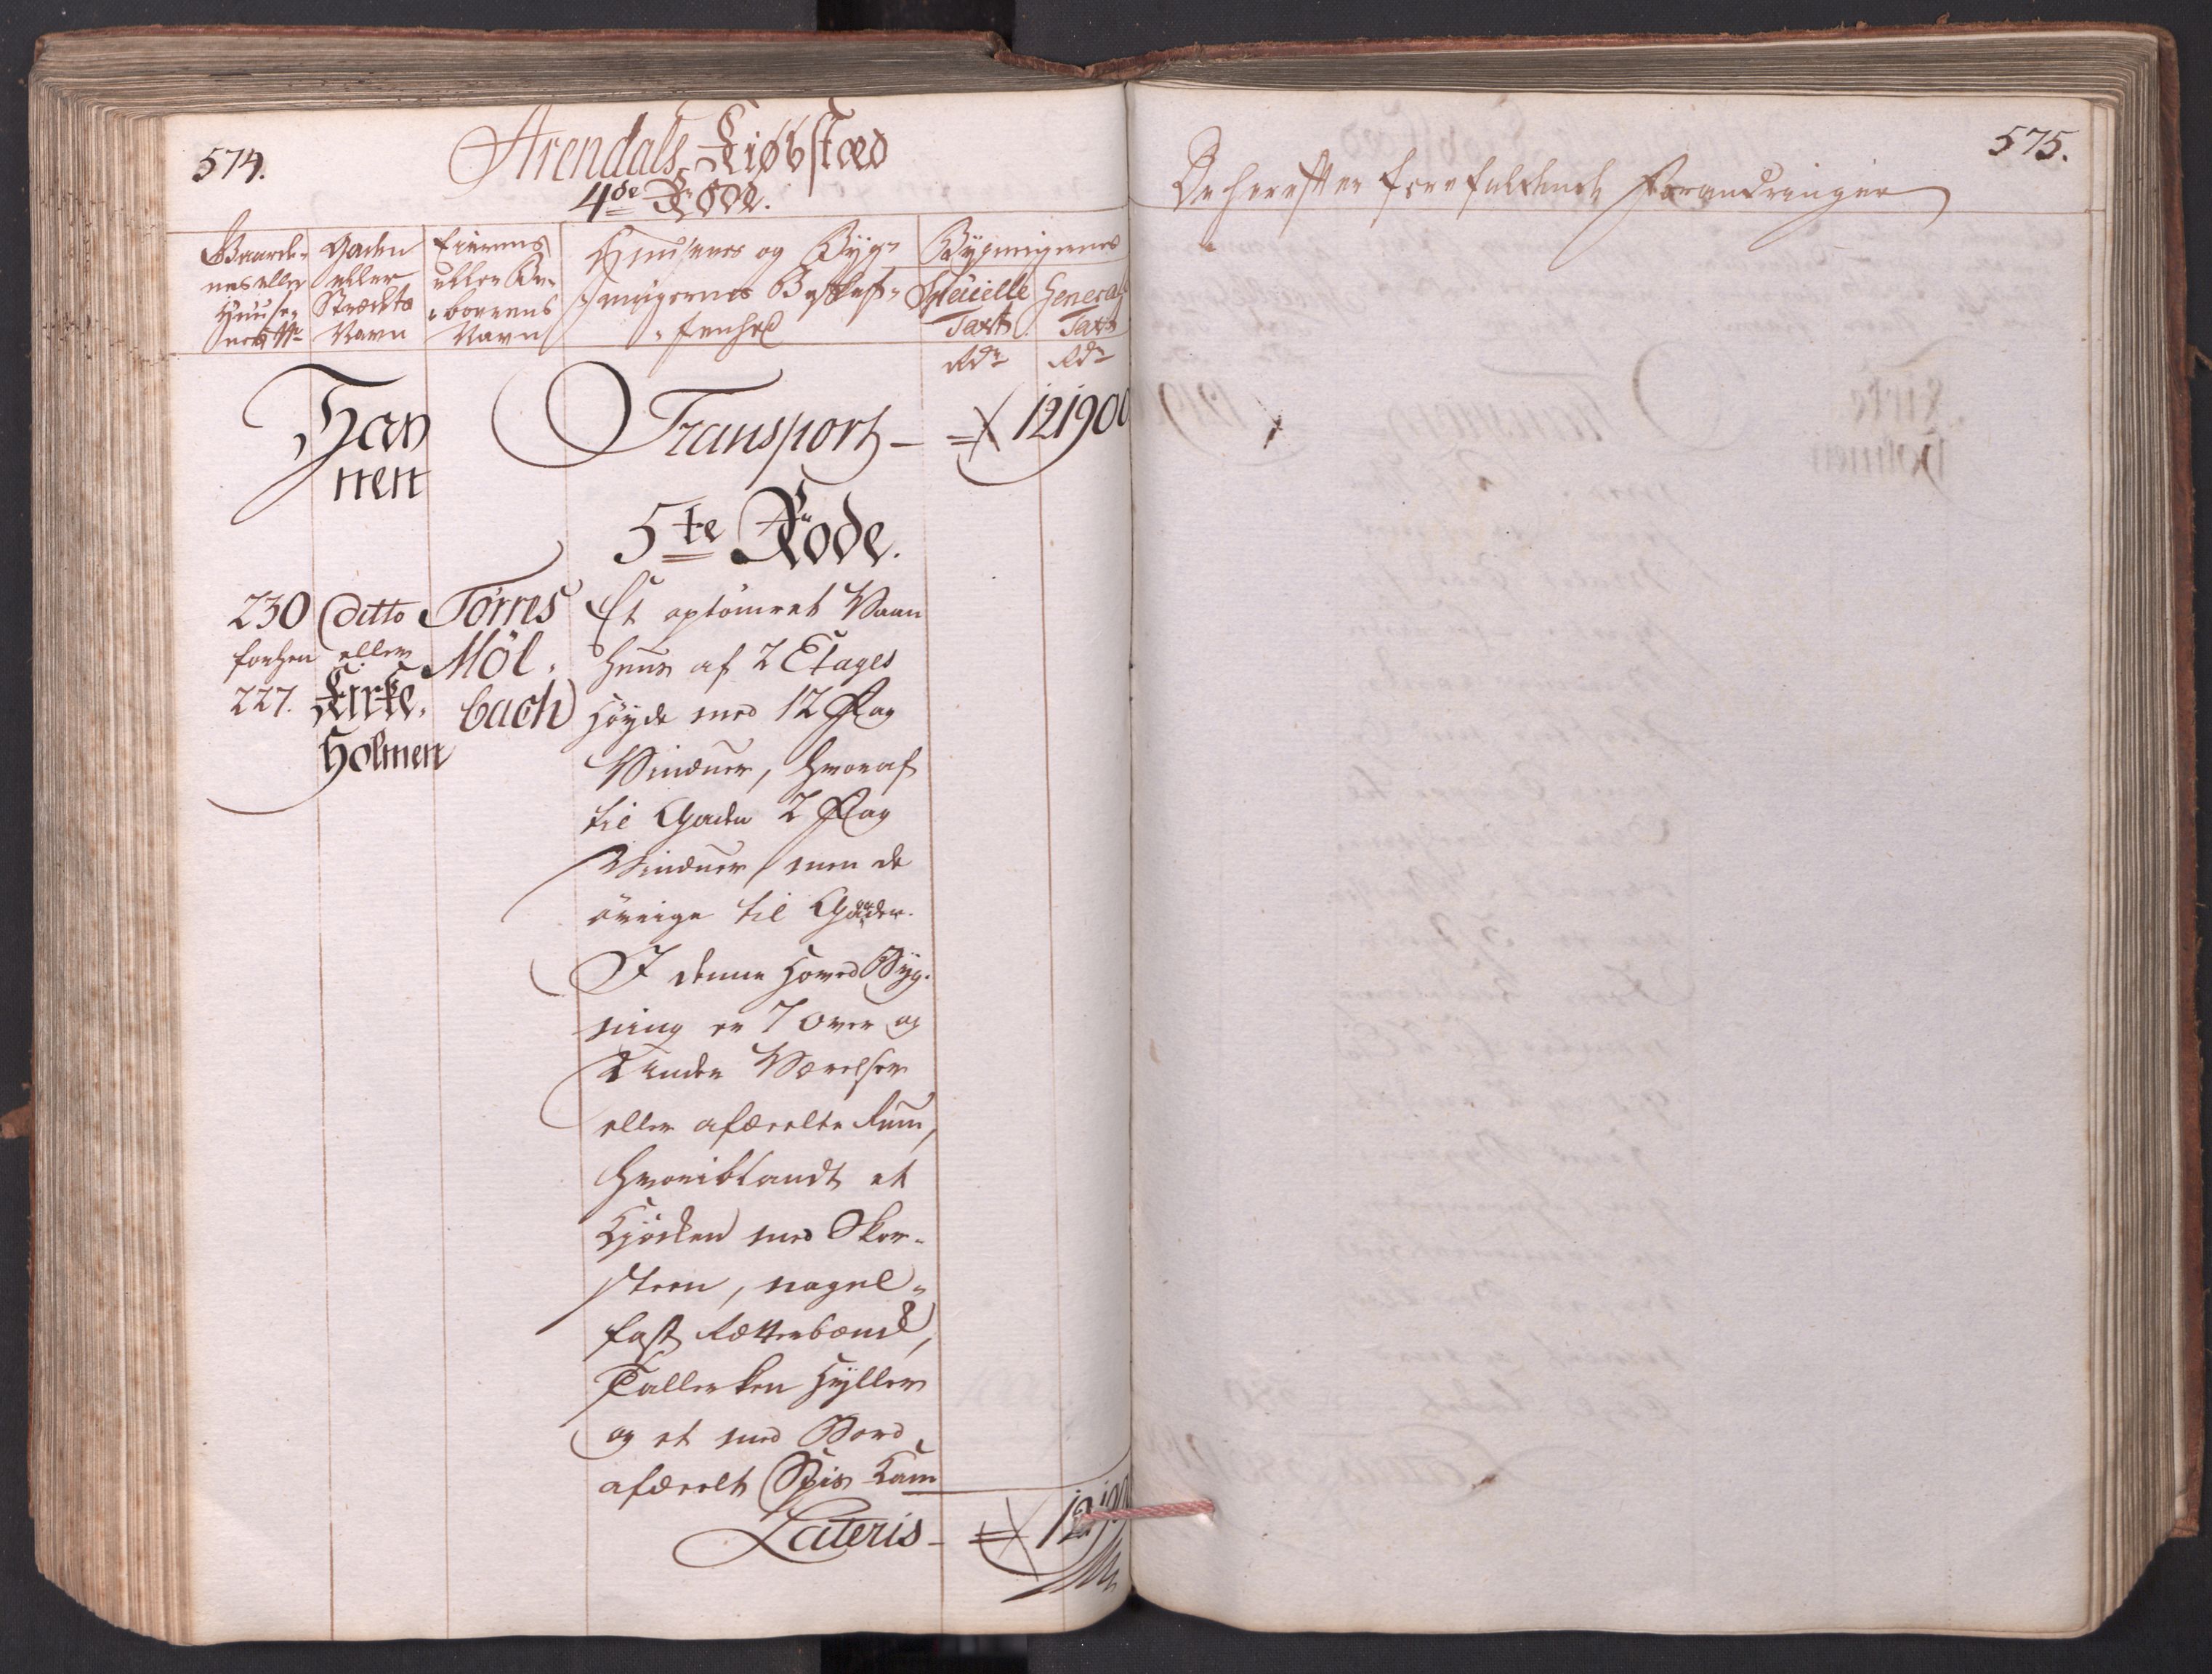 574.
Arendals Kiøbstæd
4de Rode.
Gaarde-
nes eller
Huuse-
nes No
Gaden
eller
Strædets
Navn
Eierens
eller Be-
boerens
Navn
Huusenes og Byg-
ningernes Beskaf-
fenhed
Bygningernes
Specielle
Taxt
Rdr
General
Taxt
Rdr
Transport - = 121900
Hav
nen
5te Rode.
230
forhen
227.
Ditto
eller
Kirke-
Holmen
Torres
Møl-
bach
Et optømret Vaan
Huus af 2 Etages
Høyde med 12 Fag
Vinduer, hvoraf
til Gaden 2 Fag
Vinduer, men de
øvrige til Gaarden.
I denne Hoved Byg-
ning er 7 over og
under Værelser
eller afdeelte Rum,
hvoriblandt et
Kjøcken med Skor-
steen, nagel-
fast Retterbænk,
Tallerken Hyller
og et med Bord
afdeelt Spis Kam
Lateris - = 12190
575.
De herefter forefaldende Forandringer